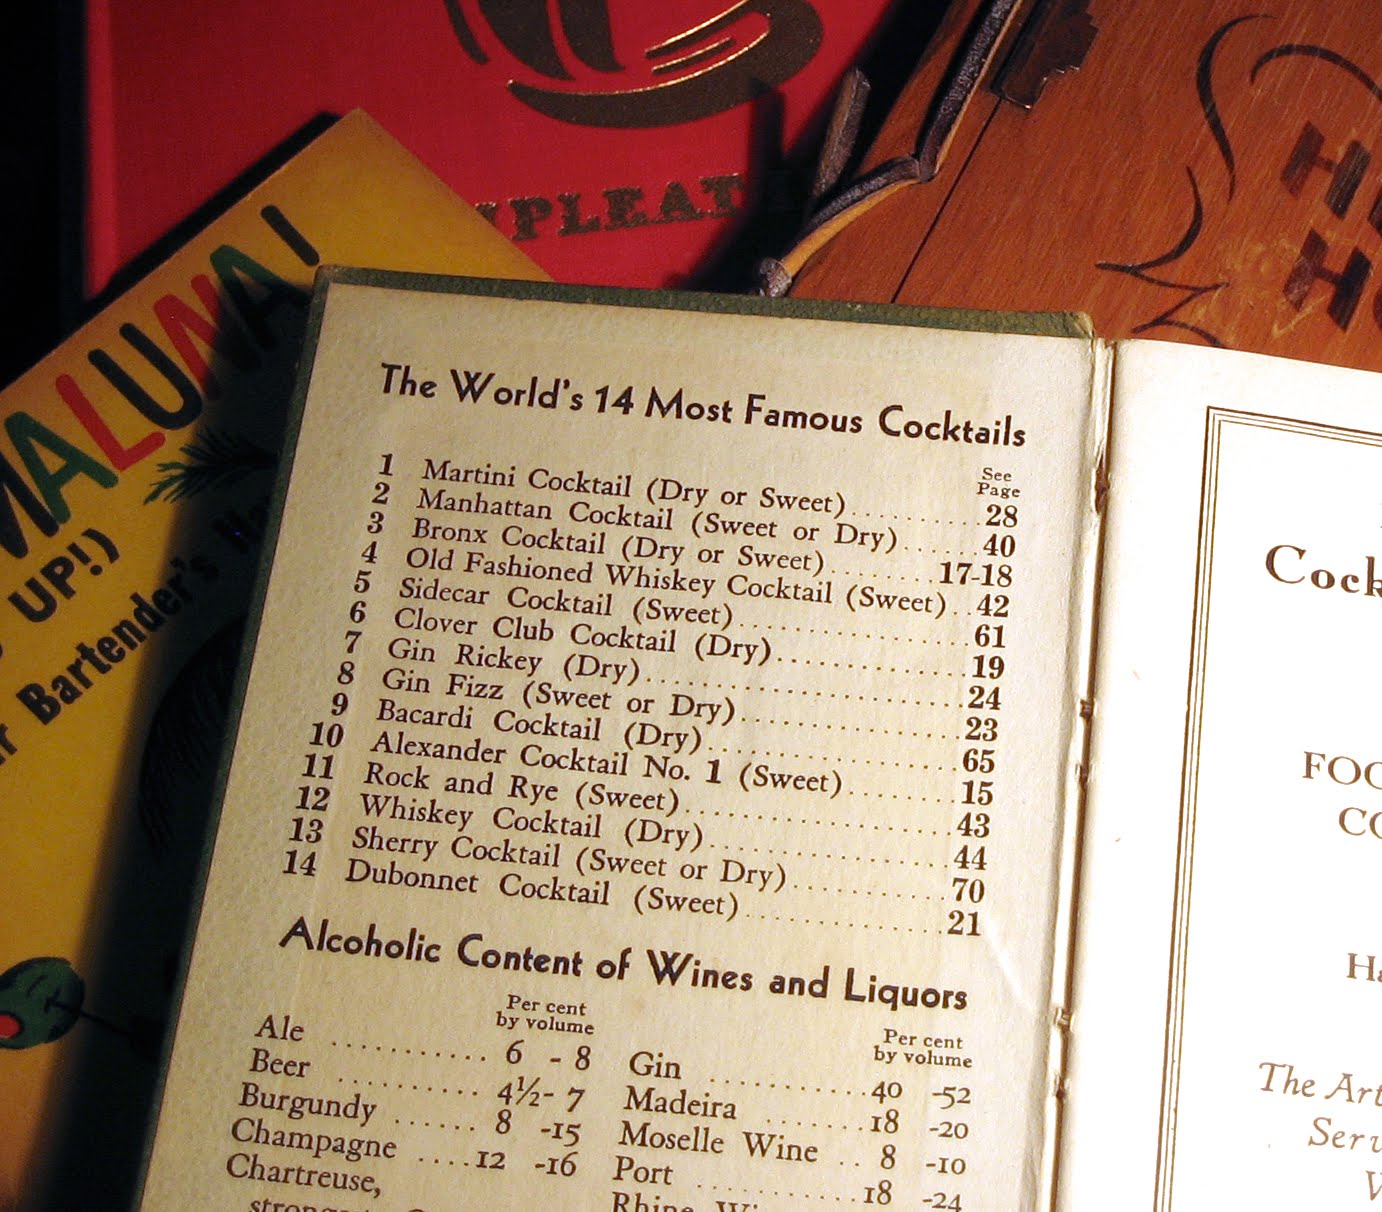 MPLEAT
MALUNA!
UP!)
Bartender's
The World's 14 Most Famous Cocktails
See
Page
1 Martini Cocktail (Dry or Sweet) .......... 28
2 Manhattan Cocktail (Sweet or Dry) ...... 40
3 Bronx Cocktail (Dry or Sweet) ......... 17-18
4 Old Fashioned Whiskey Cocktail (Sweet) .. 42
5 Sidecar Cocktail (Sweet) ................ 61
6 Clover Club Cocktail (Dry) .............. 19
7 Gin Rickey (Dry) ........................ 24
8 Gin Fizz (Sweet or Dry) ................. 23
9 Bacardi Cocktail (Dry) .................. 65
10 Alexander Cocktail No. 1 (Sweet) ........ 15
11 Rock and Rye (Sweet) .................... 43
12 Whiskey Cocktail (Dry) .................. 44
13 Sherry Cocktail (Sweet or Dry) .......... 70
14 Dubonnet Cocktail (Sweet) ............... 21
Alcoholic Content of Wines and Liquors
Per cent
by volume
Ale ........... 6 - 8
Beer .......... 4½- 7
Burgundy ...... 8 -15
Champagne .... 12 -16
Chartreuse,
Per cent
by volume
Gin .......... 40 -52
Madeira ....... 18 -20
Moselle Wine .. 8 -10
Port .......... 18 -24
Rhine
Cock
FOO
CO
Ha
The Art
Serv